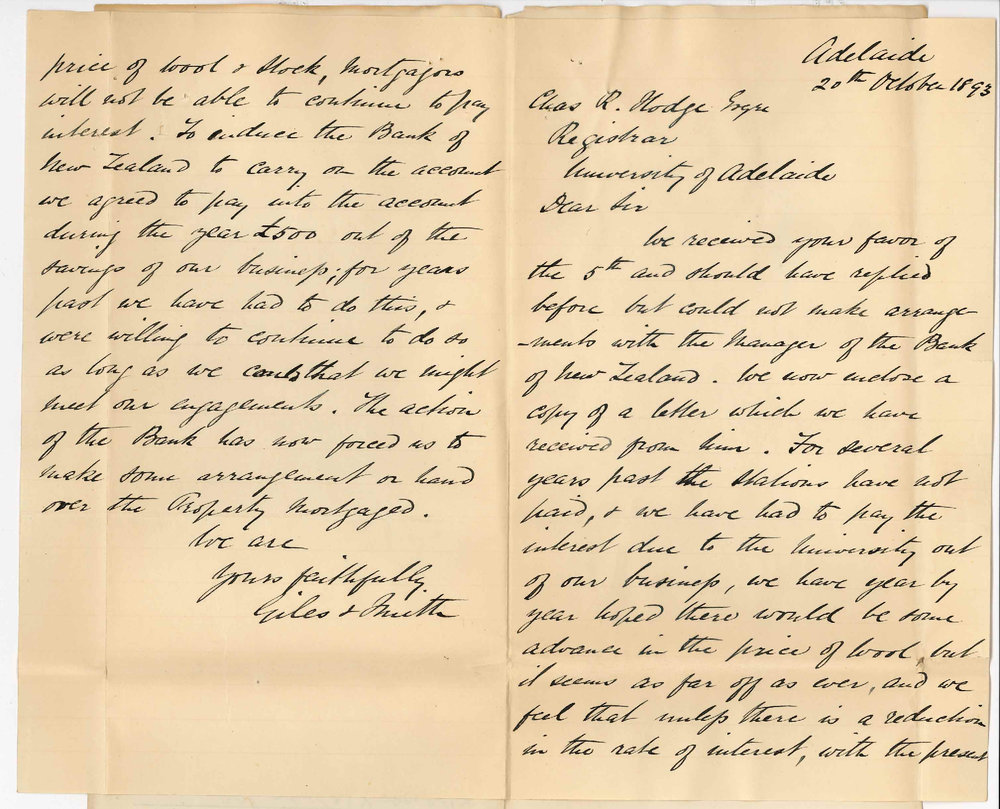 Adelaide
20th October 1893
Chas R. Hodge Esqre
Registrar
University of Adelaide
Dear Sir
We received your favor of
the 5th and should have replied
before but could not make arrange-
-ments with the Manager of the Bank
of New Zealand. We now enclose a
copy of a letter which we have
received from him. For several
years past the Stations have not
paid, & we have had to pay the
interest due to the University out
of our business, we have year by
year hoped there would be some
advance in the price of wool but
it seems as far off as ever, and we
feel that unless there is a reduction
in the rate of interest, with the present
price of wool & stock, Mortgagors
will not be able to continue to pay
interest. To induce the Bank of
New Zealand to carry on the account
we agreed to pay into the account
during the year £500 out of the
savings of our business; for years
past we have had to do this, &
were willing to continue to do so
as long as we could that we might
meet our engagements. The action
of the Bank has now forced us to
make some arrangement or hand
over the Property Mortgaged.
We are
Yours faithfully
Giles & Smith